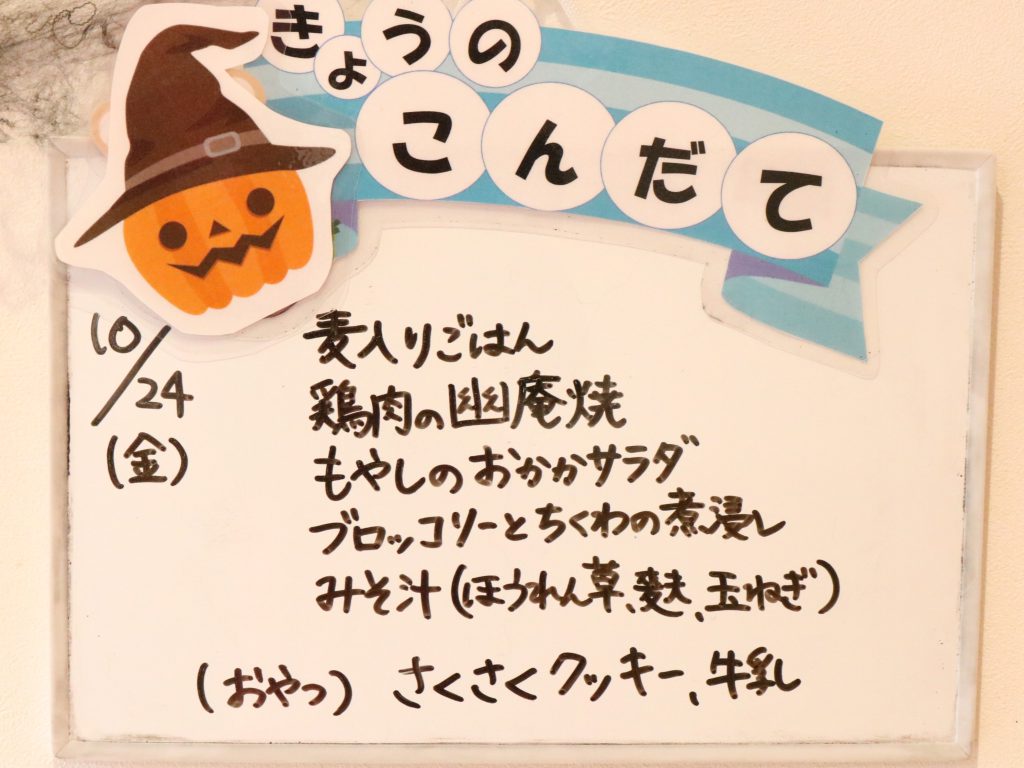 きょうの
こんだて
10/24
(金)
麦入りごはん
鶏肉の幽庵焼
もやしのおかかサラダ
ブロッコリーとちくわの煮浸し
みそ汁(ほうれん草、麩、玉ねぎ)
(おやつ) さくさくクッキー、牛乳